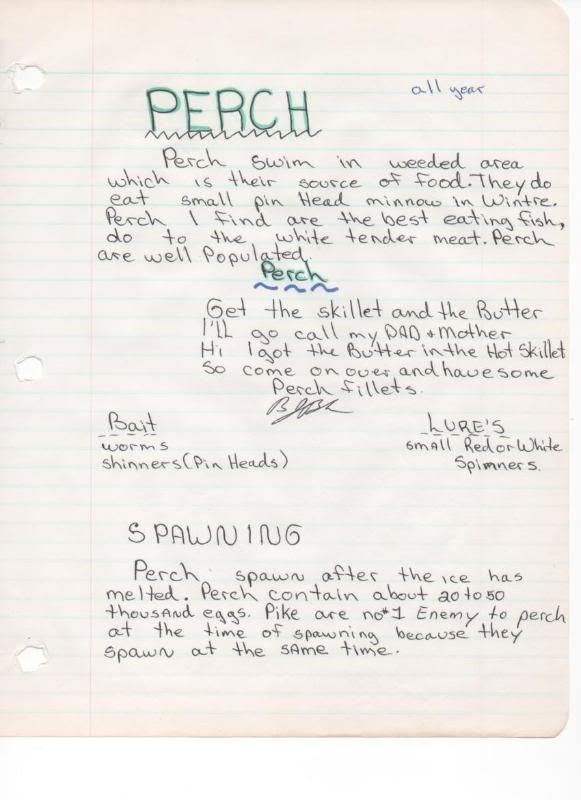 all year
PERCH
Perch swim in weeded area
which is their source of food. They do
eat small pin Head minnow in Wintre.
Perch I find are the best eating fish,
do to the white tender meat. Perch
are well Populated.
Perch
Get the skillet and the Butter
I'LL go call my DAD + Mother
Hi I got the Butter in the Hot Skillet
So come on over and have some
Perch fillets.
Bait
worms
shinners (Pin Heads)
LURE'S
small Red or White
Spinners.
SPAWNING
Perch spawn after the ice has
melted. Perch contain about 20 to 50
thousand eggs. Pike are no#1 Enemy to perch
at the time of spawning because they
spawn at the same time.